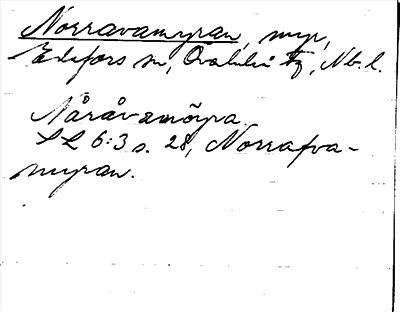 Norravamyran, myr,
Edefors sn, Överluleå tg, Nb. l.
Nåråvamöyra.
SL 6:3 s. 28, Norrafva-
myran.